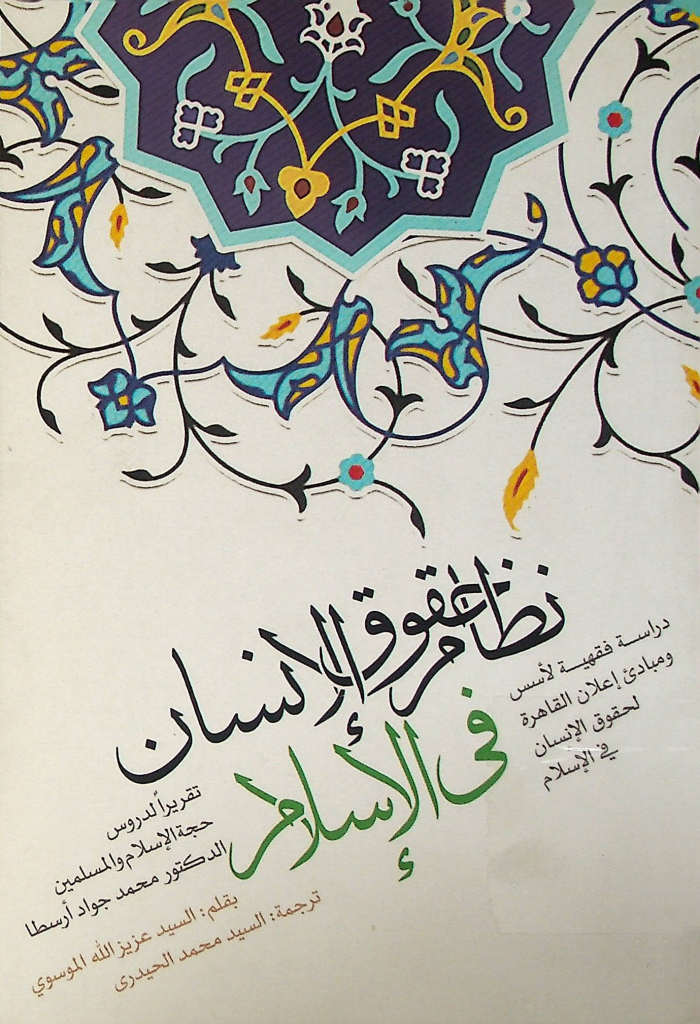 نظام حقوق الإنسان
في الإسلام
دراسة فقهية لأسس
ومبادئ إعلان القاهرة
لحقوق الإنسان
في الإسلام
تقريراً لدروس
حجة الإسلام والمسلمين
الدكتور محمد جواد أرسطا
بقلم: السيد عزيز الله الموسوي
ترجمة: السيد محمد الحيدرى